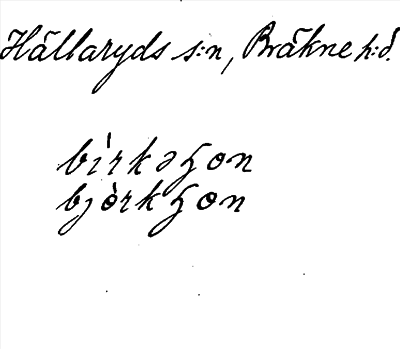 Hällaryds s:n, Bräkne h:d.
bìrkəʒon
bjòrkʒon